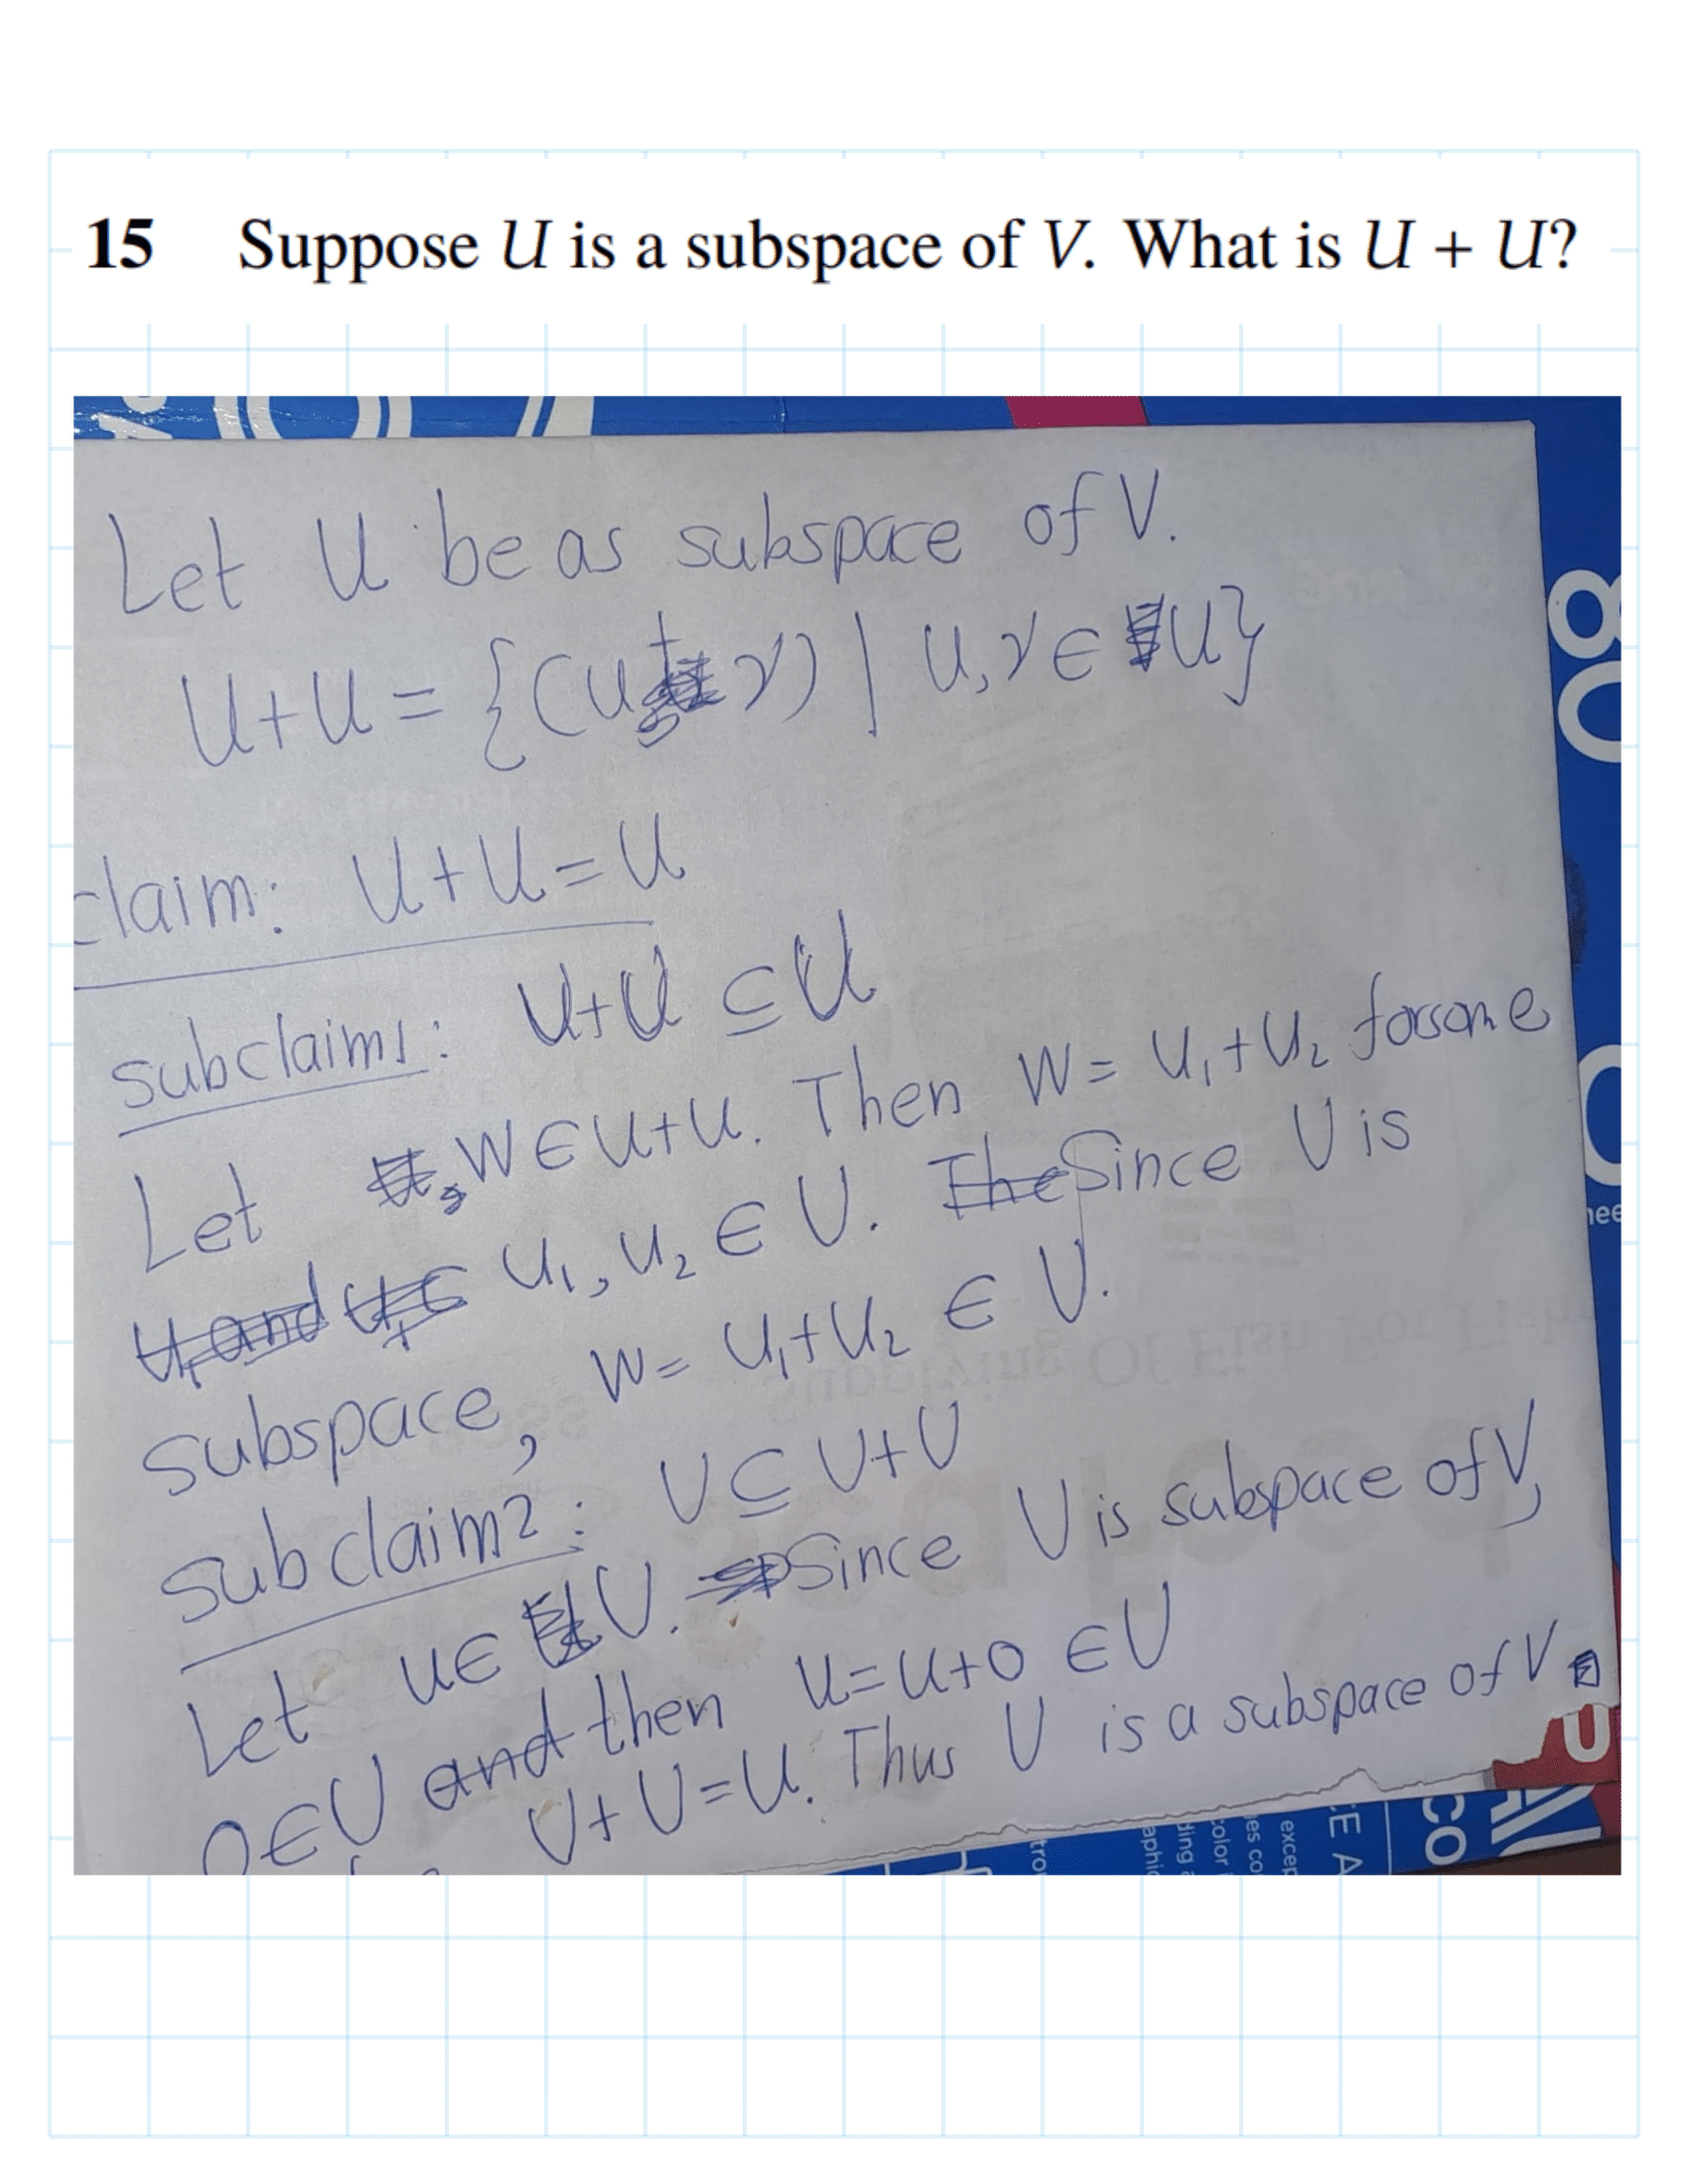 15 Suppose U is a subspace of V. What is U + U?
Let U be as subspace of V.
U+U = {(u+v) | u,v ∈ U}
claim: U+U=U
subclaim1: U+U ⊆ U
Let W ∈ U+U. Then W = u₁+u₂ for some
u₁, u₂ ∈ U. Since U is
subspace, W = u₁+u₂ ∈ U.
subclaim2: U ⊆ U+U
Let u ∈ U. Since U is subspace of V,
0 ∈ U then u = u+0 ∈ U
U+U=U. Thus U is a subspace of V
80